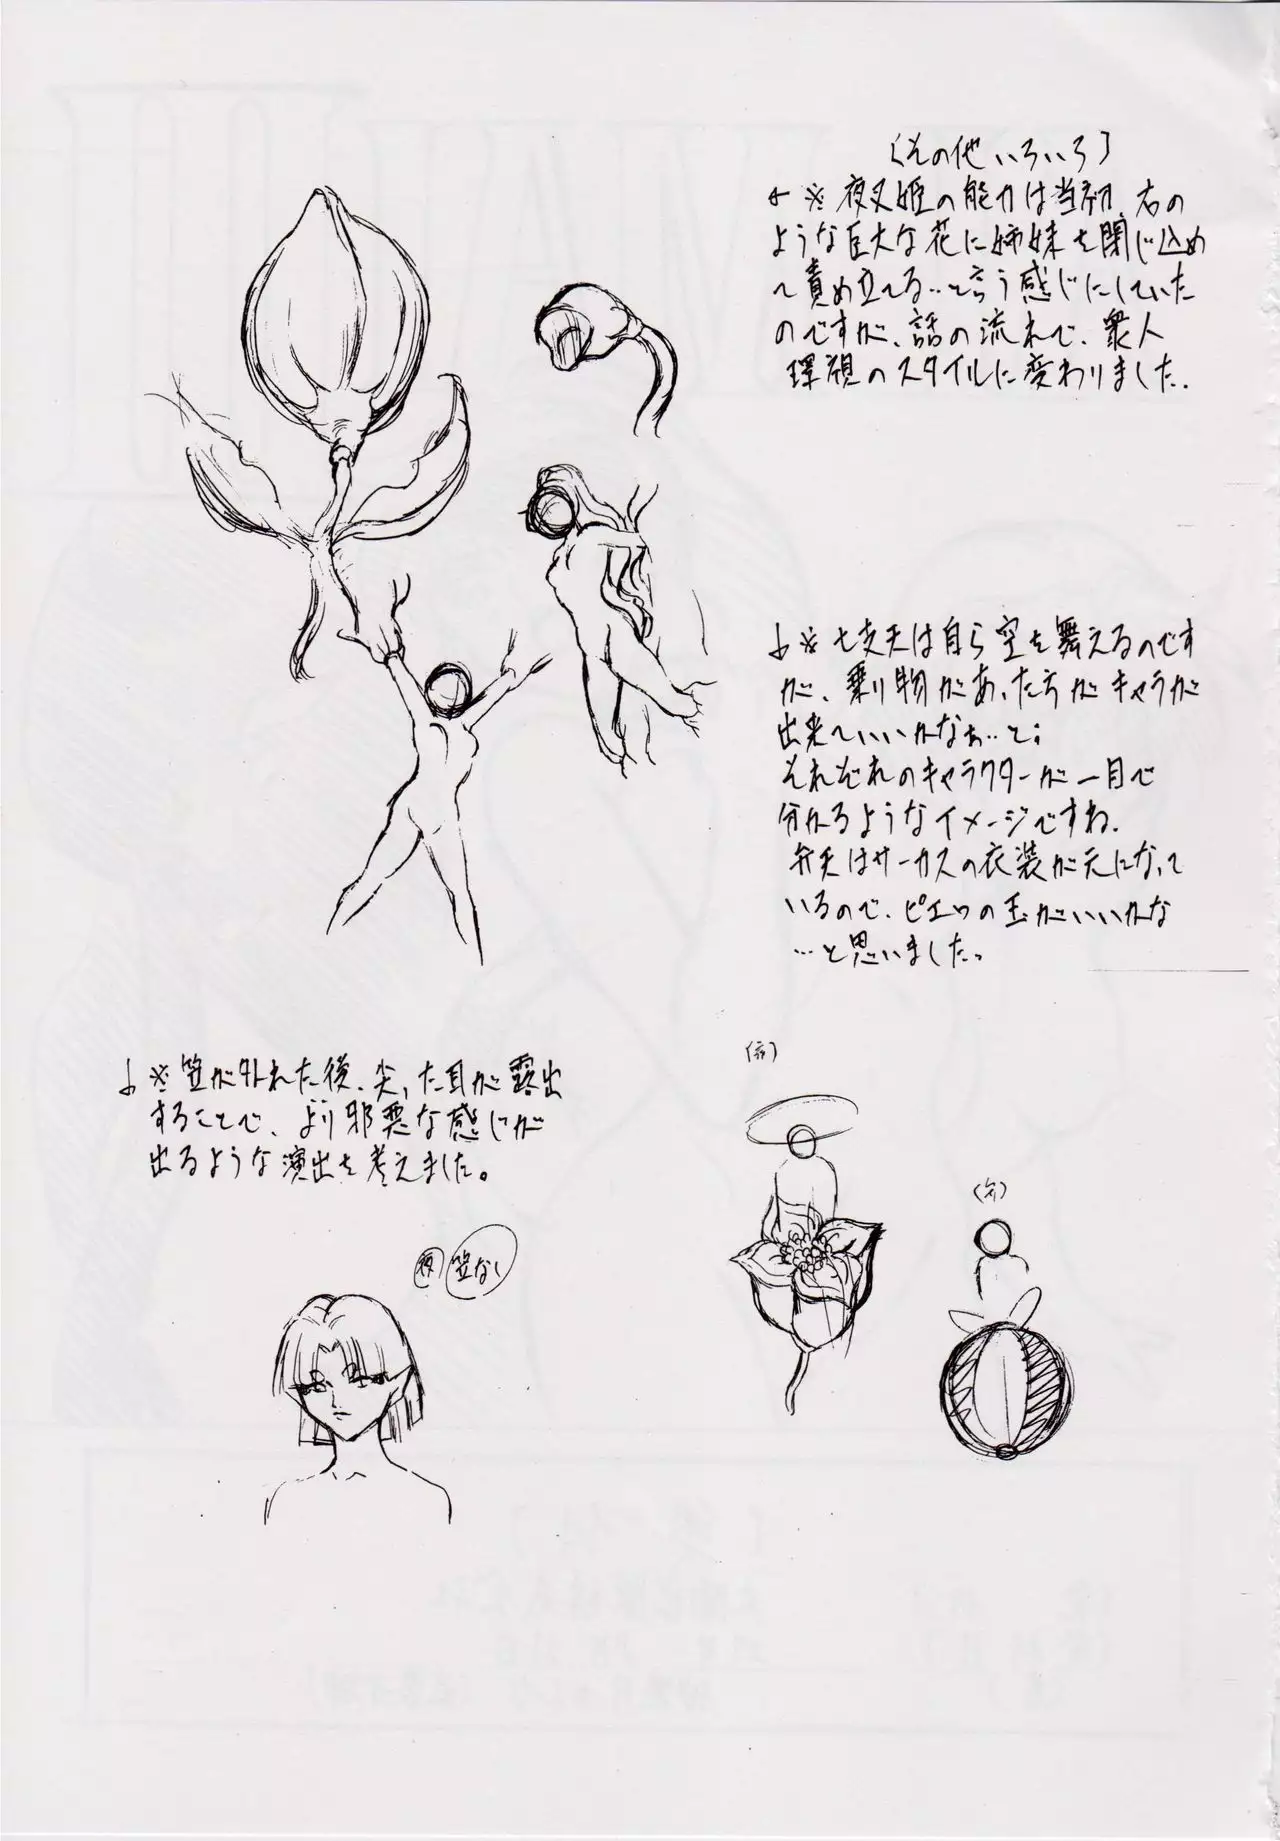 〔その他いろいろ〕
←※ 夜叉姫の能力は当初、右の
ような巨大な花に姉妹を閉じ込め
て責め立てる…と言う感じにしていた
のですが、話の流れで、衆人
環視のスタイルに変わりました.
↓※ 七支天は自ら空を舞えるのです
が、乗り物があったらがキャラが
出来ていいかなぁ…と;
それぞれのキャラクターが一目で
分かるようなイメージですね.
弁天はサーカスの衣装が元になって
いるので、ピエロの玉がいいかな
…と思いました。
↓※ 笠が外れた後、尖った耳が露出
することで、より邪悪な感じが
出るような演出を考えました。
(夜)
(弁)
夜 笠なし